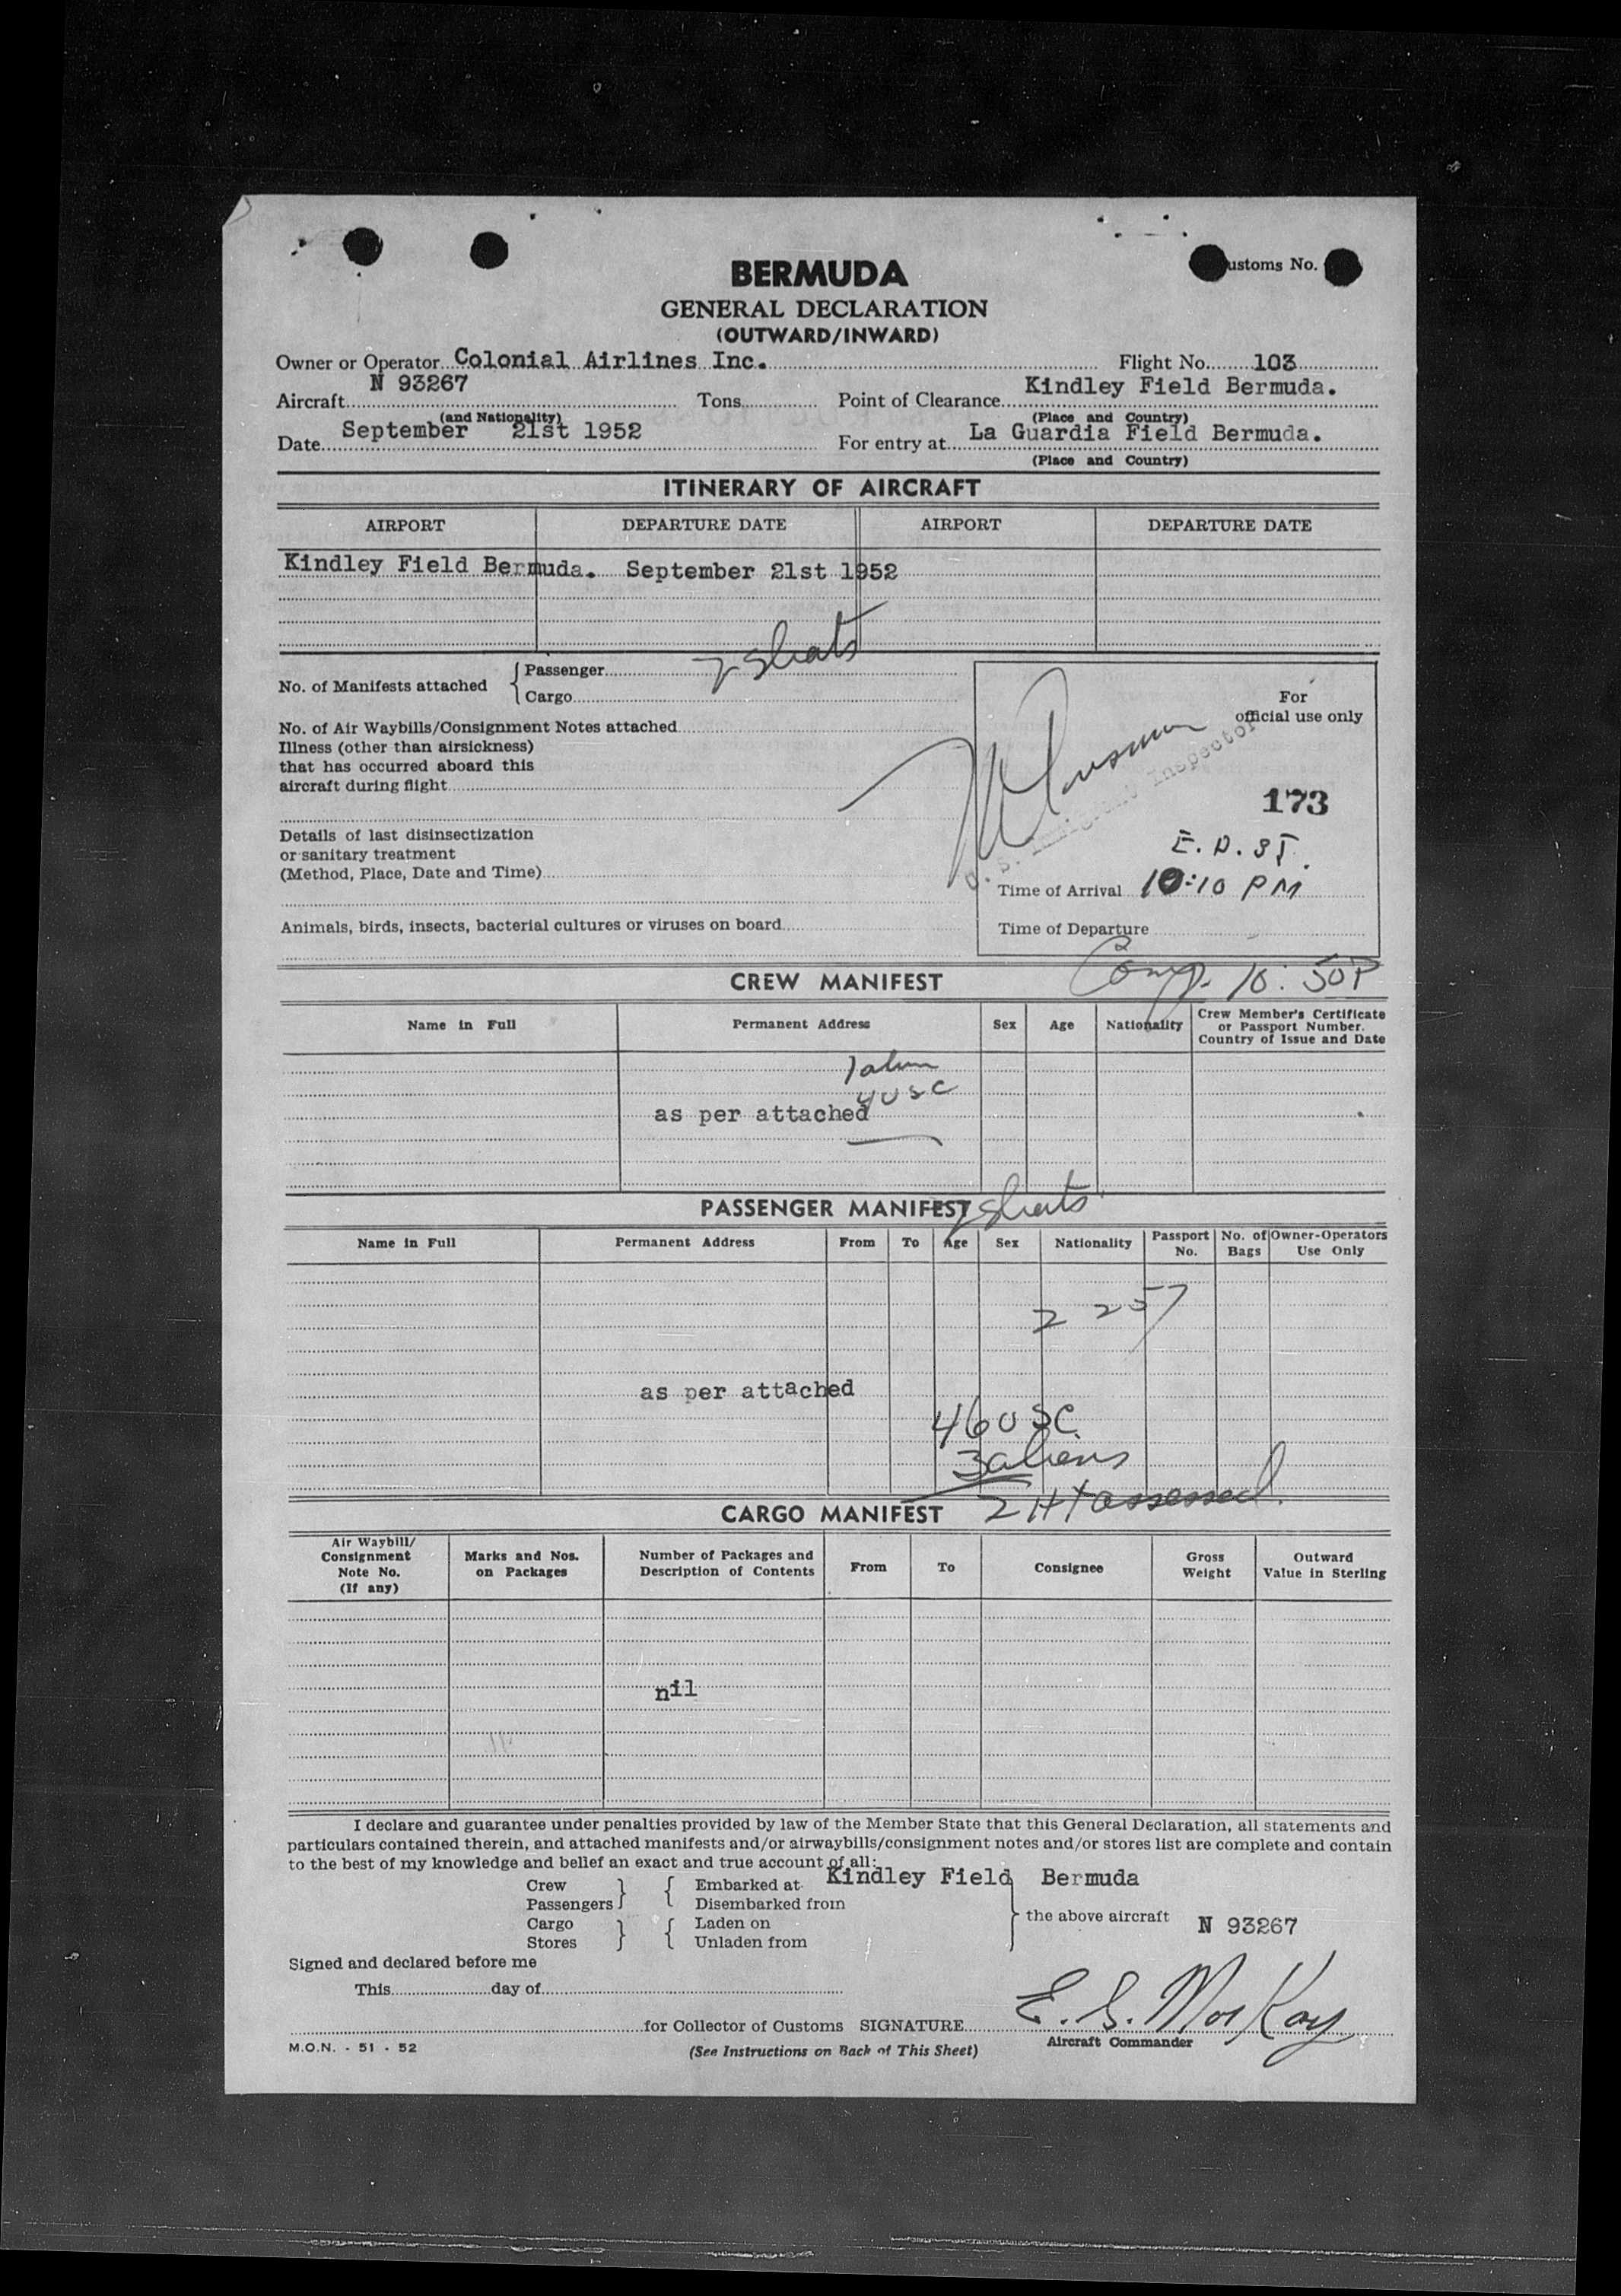 BERMUDA
ustoms No.
GENERAL DECLARATION
(OUTWARD/INWARD)
Owner or Operator Colonial Airlines Inc. Flight No. 103
Aircraft N 93267 Tons Point of Clearance Kindley Field Bermuda.
(and Nationality) (Place and Country)
Date September 21st 1952 For entry at La Guardia Field Bermuda.
(Place and Country)
ITINERARY OF AIRCRAFT
AIRPORT DEPARTURE DATE AIRPORT DEPARTURE DATE
Kindley Field Bermuda. September 21st 1952
No. of Manifests attached { Passenger
Cargo
For
official use only
No. of Air Waybills/Consignment Notes attached
Illness (other than airsickness)
that has occurred aboard this
aircraft during flight
U.S. Immigrant Inspector
173
Details of last disinsectization
or sanitary treatment
(Method, Place, Date and Time)
E.D.ST.
Time of Arrival 10:10 PM
Animals, birds, insects, bacterial cultures or viruses on board
Time of Departure
Comp. 10:50P
CREW MANIFEST
Name in Full Permanent Address Sex Age Nationality Crew Member's Certificate
or Passport Number.
Country of Issue and Date
4 USC
as per attached
PASSENGER MANIFEST 2 sheets
Name in Full Permanent Address From To Age Sex Nationality Passport No. No. of Bags Owner-Operators Use Only
2 257
as per attached
46 USC
3 aliens
2 HT assessed.
CARGO MANIFEST
Air Waybill/
Consignment
Note No.
(If any)
Marks and Nos.
on Packages
Number of Packages and
Description of Contents
From To Consignee
Gross
Weight
Outward
Value in Sterling
nil
I declare and guarantee under penalties provided by law of the Member State that this General Declaration, all statements and
particulars contained therein, and attached manifests and/or airwaybills/consignment notes and/or stores list are complete and contain
to the best of my knowledge and belief an exact and true account of all:
Crew } { Embarked at Kindley Field Bermuda
Passengers } { Disembarked from
Cargo } { Laden on } the above aircraft N 93267
Stores } { Unladen from
Signed and declared before me
This day of
for Collector of Customs SIGNATURE E. S. MacKay
Aircraft Commander
M.O.N. - 51 - 52 (See Instructions on Back of This Sheet)